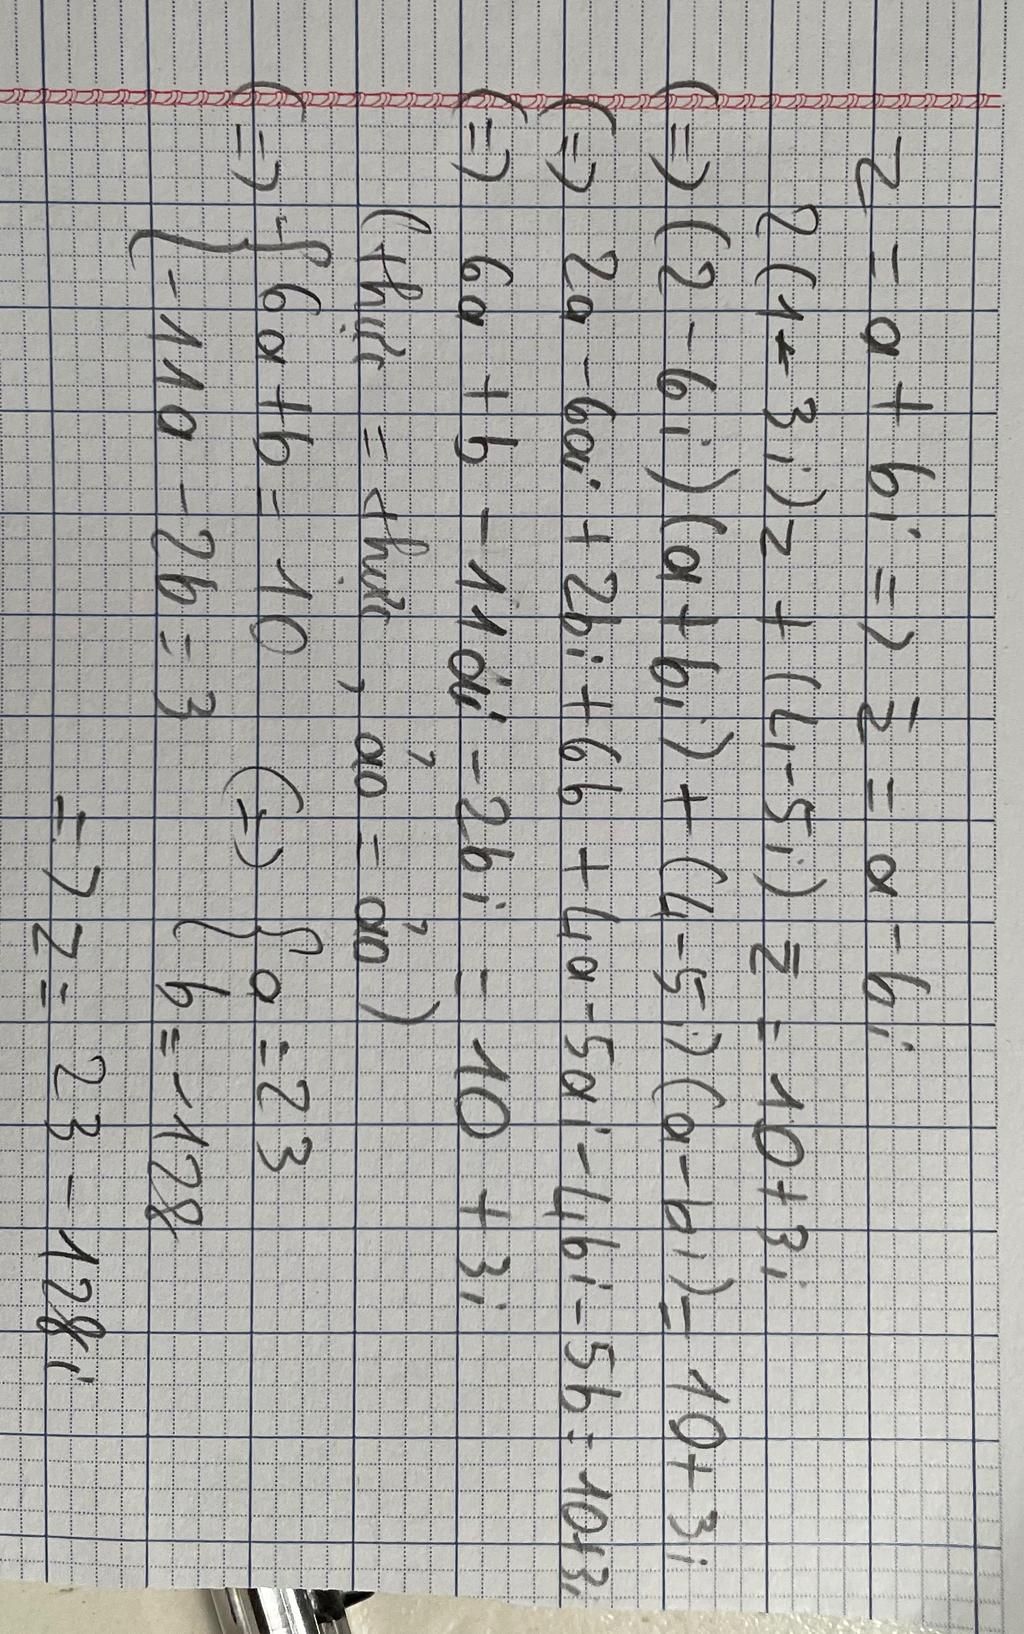 z = a + bi => z̄ = a - bi
2(1 - 3i)z + (4 - 5i) z̄ = 10 + 3i
(=) (2 - 6i)(a + bi) + (4 - 5i)(a - bi) = 10 + 3i
(=) 2a - 6ai + 2bi + 6b + 4a - 5ai - 4bi - 5b = 10 + 3i
(=) 6a + b - 11ai - 2bi = 10 + 3i
(thực = thực, ảo = ảo)
(=) { 6a + b = 10
-11a - 2b = 3 (=) { a = 23
b = -128
=> z = 23 - 128i